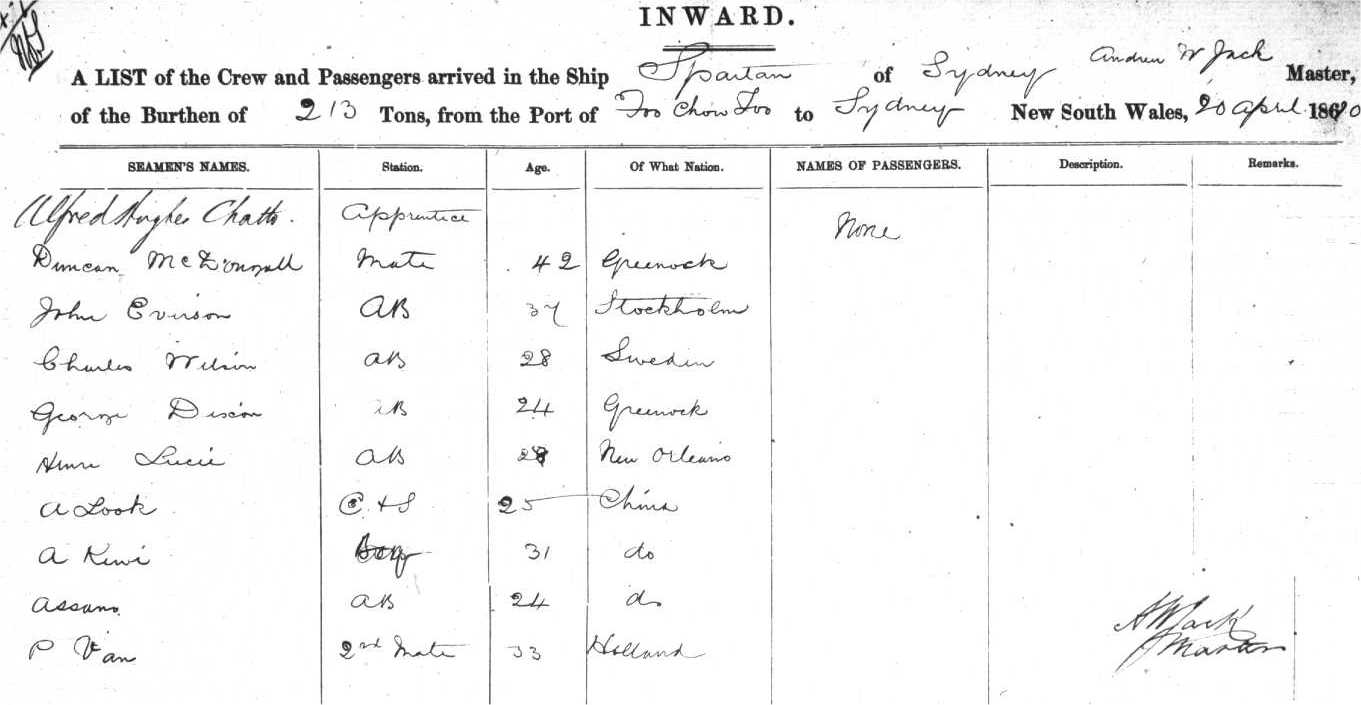 INWARD.
A LIST of the Crew and Passengers arrived in the Ship Spartan of Sydney Andrew W Jack Master,
of the Burthen of 213 Tons, from the Port of Foo Chow Foo to Sydney New South Wales, 20 April 1870
SEAMEN'S NAMES. Station. Age. Of What Nation. NAMES OF PASSENGERS. Description. Remarks.
Alfred Hughes Chatto. Apprentice None
Duncan McDougall Mate 42 Greenock
John Everson AB 37 Stockholm
Charles Wilson AB 28 Sweden
George Dixon AB 24 Greenock
Henri Lucie AB 28 New Orleans
A Look C & S 25 China
A Kewi Boy 31 do
Assano AB 24 do
P Van 2nd Mate 33 Holland
AW Jack
Master